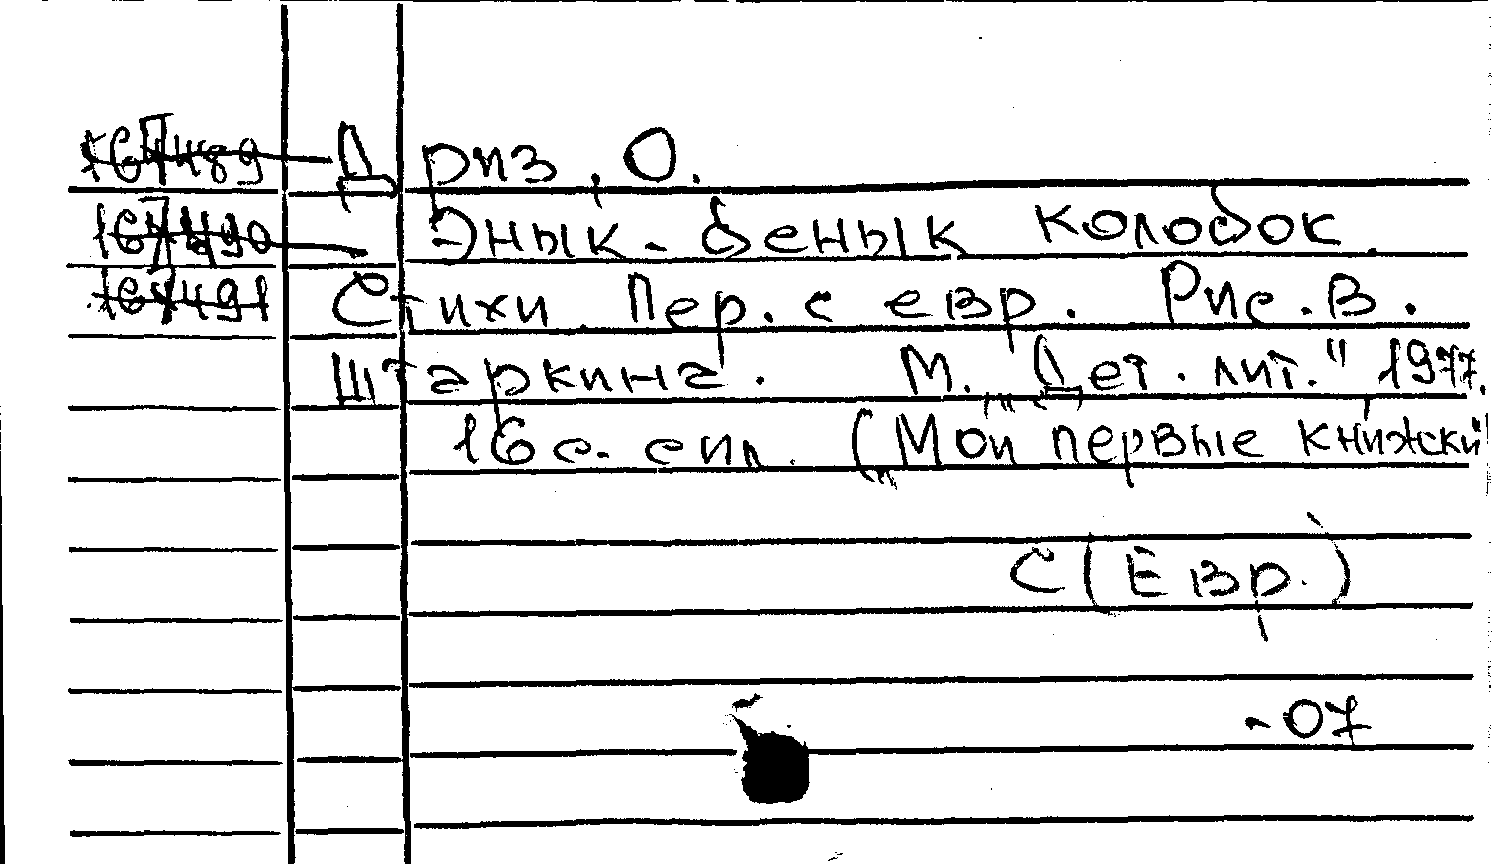 167489 Дриз, О.
167490 Энык-беник колобок.
167491 Стихи. Пер. с евр. Рис. В.
Штаркина. М. „Дет. лит." 1977.
16 с. с ил. („Мои первые книжки"
С (Евр.)
-07